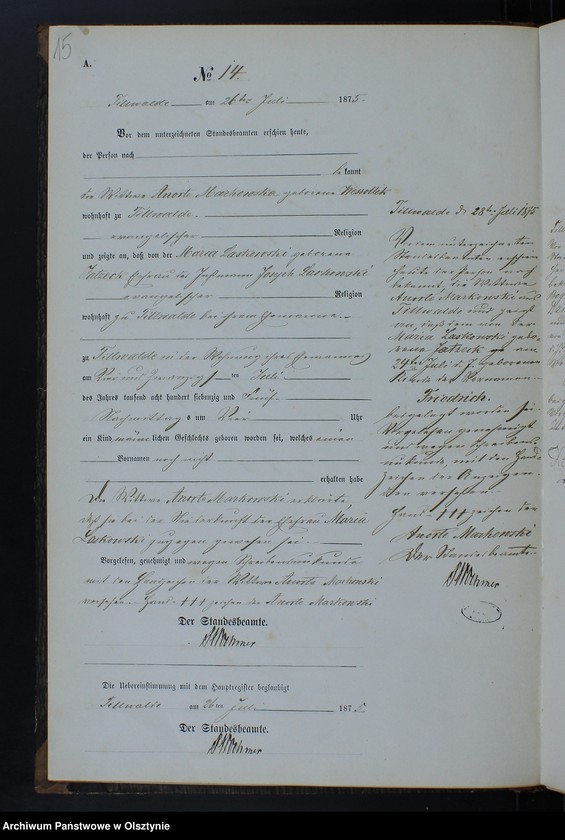 15
A.
№ 14.
Tillwalde am 26ten Juli 1875.
Vor dem unterzeichneten Standesbeamten erschien heute,
der Person nach
bekannt
die Wittwe Anorte Markowska geborene
wohnhaft zu Tillwalde.
evangelischer Religion
und zeigte an, daß von der Maria Laskowski geborene
Jatzeck Ehefrau des Joseph Laskowski
evangelischer Religion
wohnhaft zu Tillwalde bei ihrem Ehemanne
zu Tillwalde in der Wohnung ihres Ehemannes
am Vier und zwanzigsten Juli
des Jahres tausend acht hundert siebenzig und fünf
Nachmittags um Vier Uhr
ein Kind männlichen Geschlechts geboren worden sei, welches einen
Vornamen noch nicht
erhalten habe
Die Wittwe Anorte Markowski erklärte,
daß sie bei der Niederkunft der Ehefrau Maria
Laskowski zugegen gewesen sei.
Vorgelesen, genehmigt und wegen Schreibensunkunde
mit dem Handzeichen der Wittwe Anorte Markowski
versehen. Hand +++ zeichen der Anorte Markowski
Der Standesbeamte.
Die Uebereinstimmung mit dem Hauptregister beglaubigt
Tillwalde am 26ten Juli 1875.
Der Standesbeamte.
Tillwalde d 28ten Juli 1875
Vor dem unterzeichneten
Standesbeamten erschien
heute der Person nach
bekannt, die Wittwe
Anorte Markowski aus
Tillwalde und zeigte
an, daß dem von der
Maria Laskowski gebo-
rene Jatzeck am
24ten Juli d. J. geborenen
Kinde der Vorname
Friedrich.
beigelegt worden sei.
Vorgelesen genehmigt
und wegen Schreibens-
unkunde mit dem Hand-
zeichen der Anzeigen-
den versehen.
Hand +++ zeichen der
Anorte Markowski
Der Standesbeamte.
Archiwum Państwowe w Olsztynie